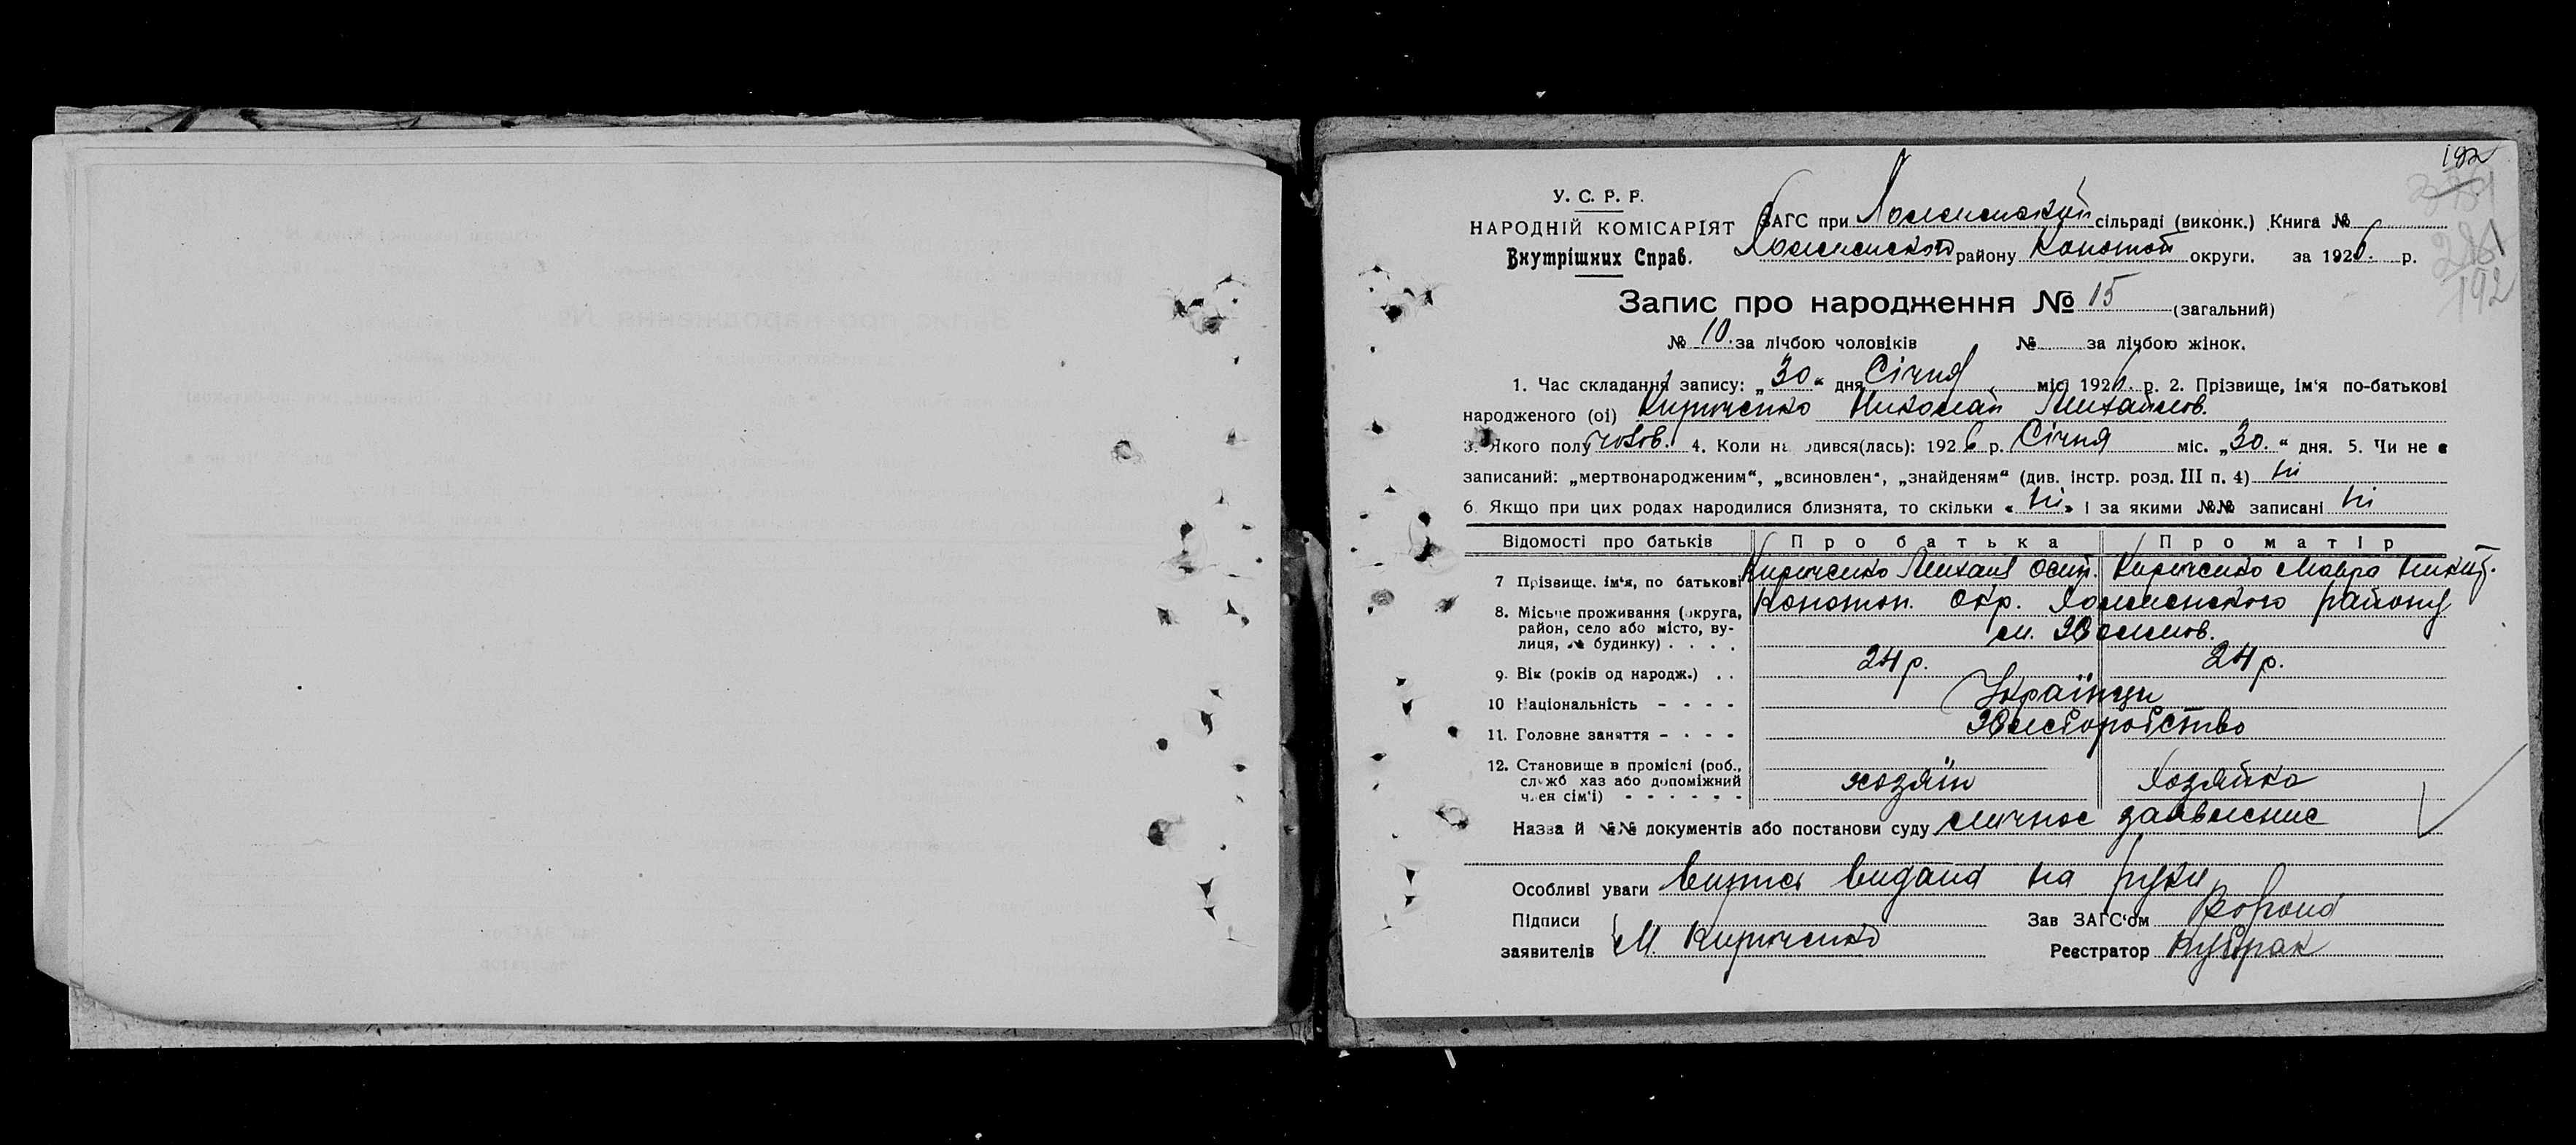 192
У. С. Р. Р.
НАРОДНІЙ КОМІСАРІЯТ
Внутрішних Справ.
ЗАГС при Холменской сільраді (виконк.) Книга №
Холменского району Конотоп округи. за 1926 р.
192
Запис про народження № 15 (загальний)
№ 10. за лічбою чоловіків № за лічбою жінок.
1. Час складання запису: „30“ дня Січня міс. 1926 р. 2. Прізвище, ім‘я по-батькові
народженого (ої) Кириченко Николай Михайлов.
3. Якого полу чолов. 4. Коли на одився(лась): 1926 р. Січня міс. „30.“ дня. 5. Чи не є
записаний: „мертвонародженим“, „всиновлен“, „знайденям“ (див. інстр. розд. III п. 4) Ні
6. Якщо при цих родах народилися близнята, то скільки «Ні» і за якими №№ записані Ні
Відомості про батьків Про батька Про матір
7 Прізвище, ім‘я, по батькові Кириченко Михаил Осип. Кириченко Мавра Никит.
8. Місьце проживання (округа, район, село або місто, вулиця, № будинку) . . . . Конотоп. Окр. Холменского району
м. Холмов.
9. Вік (років од народж.) . . 24 р. 24 р.
10 Національність - - - - Українци
11. Головне заняття - - - - Хліборобство
12. Становище в промислі (роб., служб хаз або допоміжний член сім‘ї) - - - - - - хозяїн Хозяйка
Назва й №№ документів або постанови суду личное заявление
Особливі уваги Випись видана на руки
Підписи
заявителів М. Кириченко
Зав ЗАГС‘ом
Реєстратор Кубрак